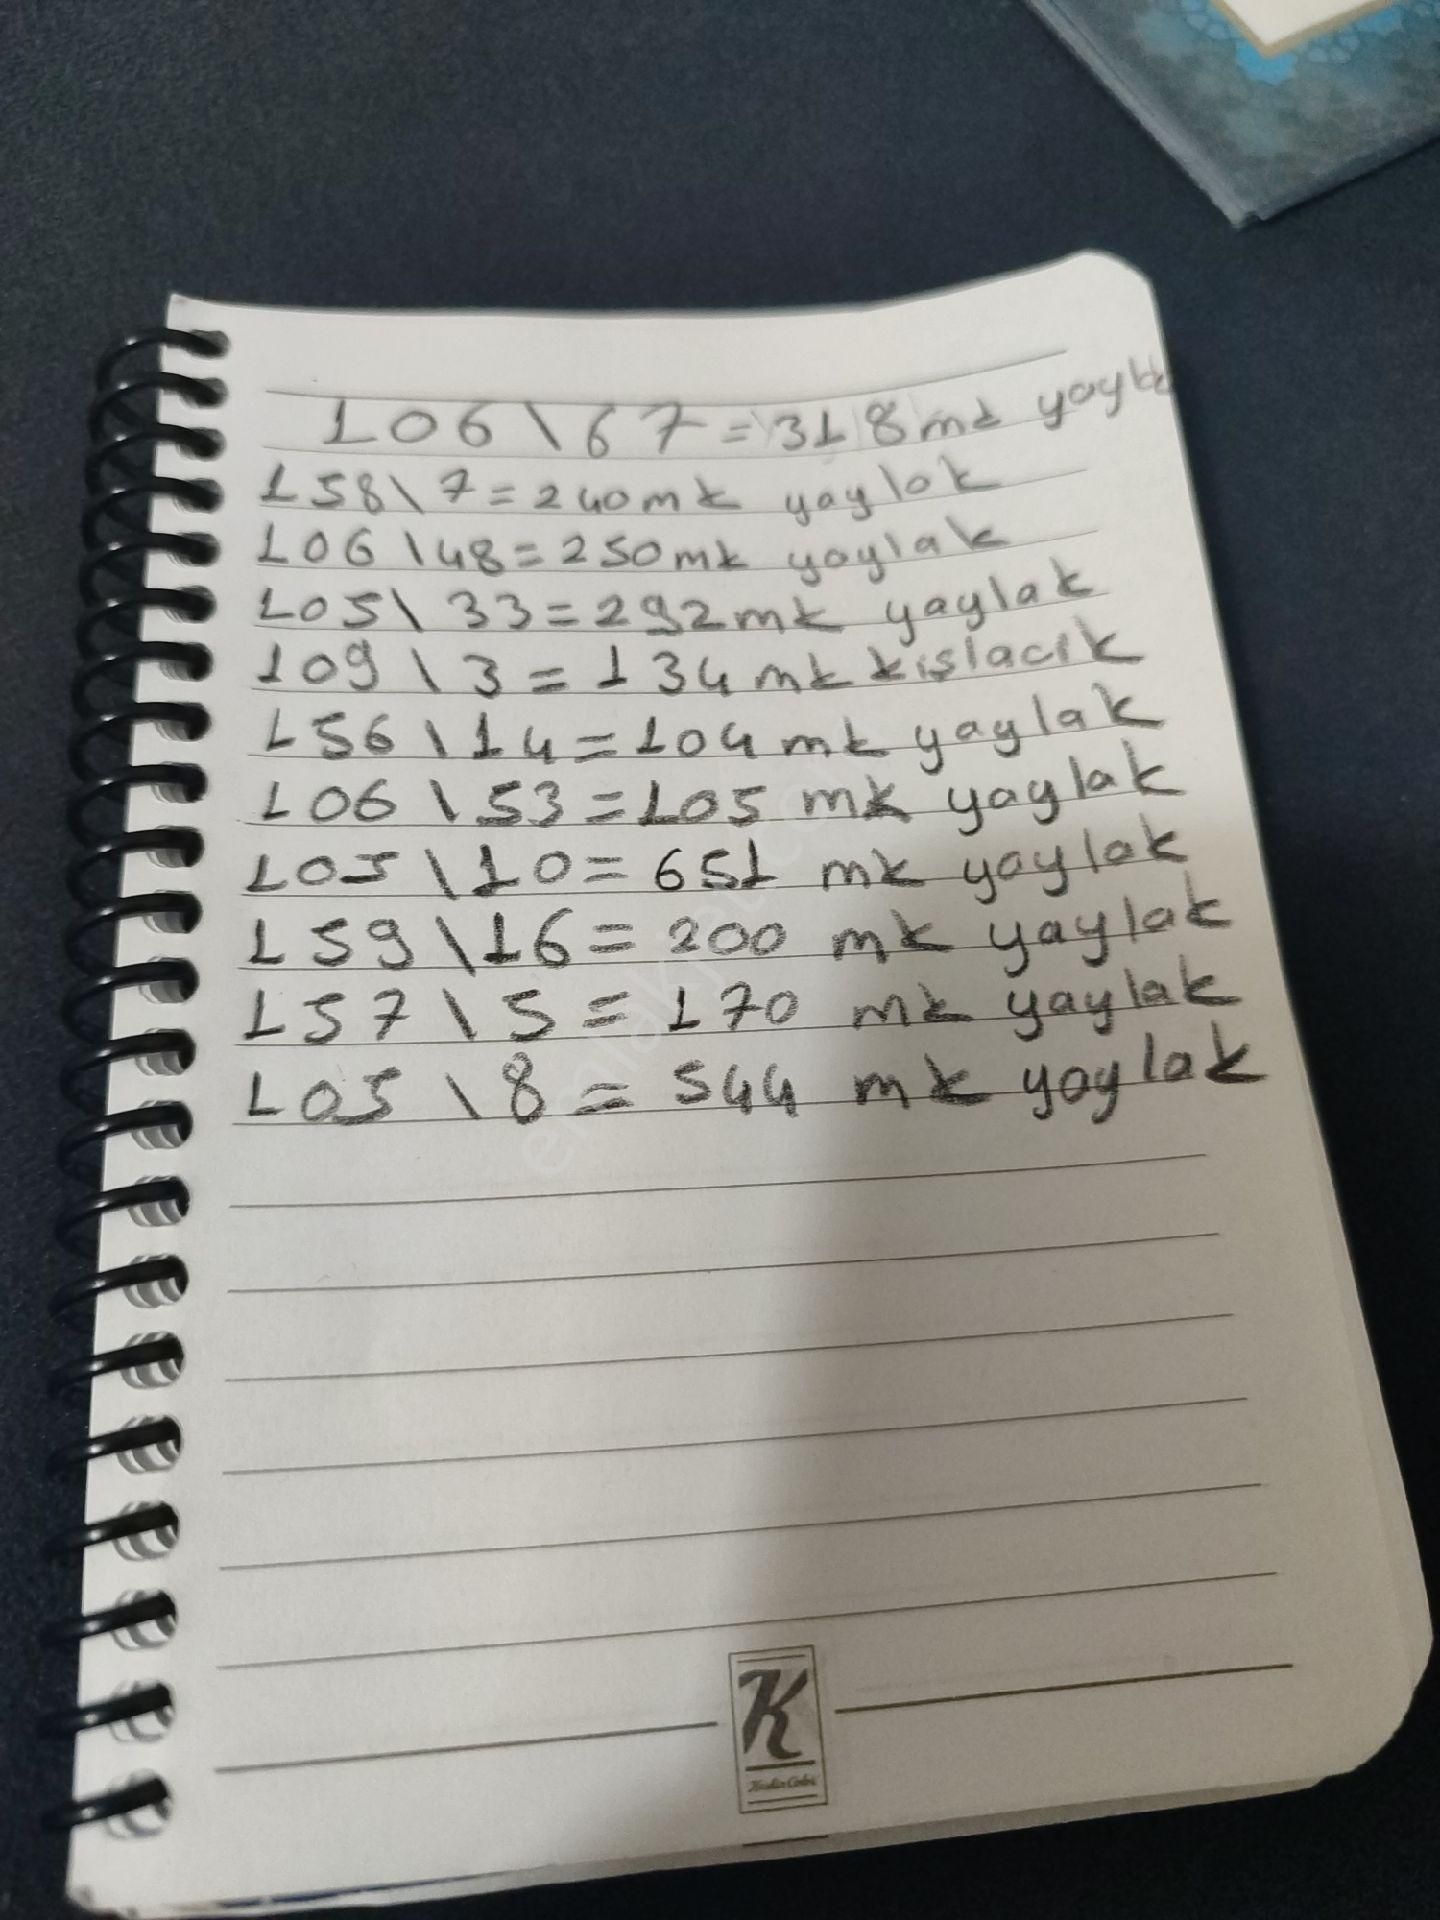 106\67=318mk yaylk
158\7=240mk yaylak
106\48=250mk yaylak
105\33=292mk yaylak
109\3=134mk kışlacık
156\14=104mk yaylak
106\53=105 mk yaylak
105\10=651 mk yaylak
159\16=200 mk yaylak
157\5=170 mk yaylak
105\8=544 mk yaylak
K